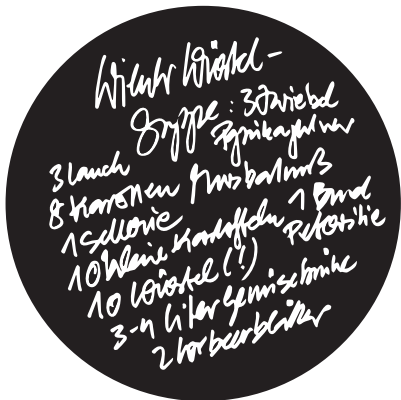 Wiener Würstel-
Suppe: 3 Zwiebel
Paprikapulver
3 Lauch
8 Karotten Muskatnuß
1 Sellerie
10 kleine Kartoffeln 1 Bund
Petersilie
10 Würstel (?)
3-4 Liter Gemüsebrühe
2 Lorbeerblätter